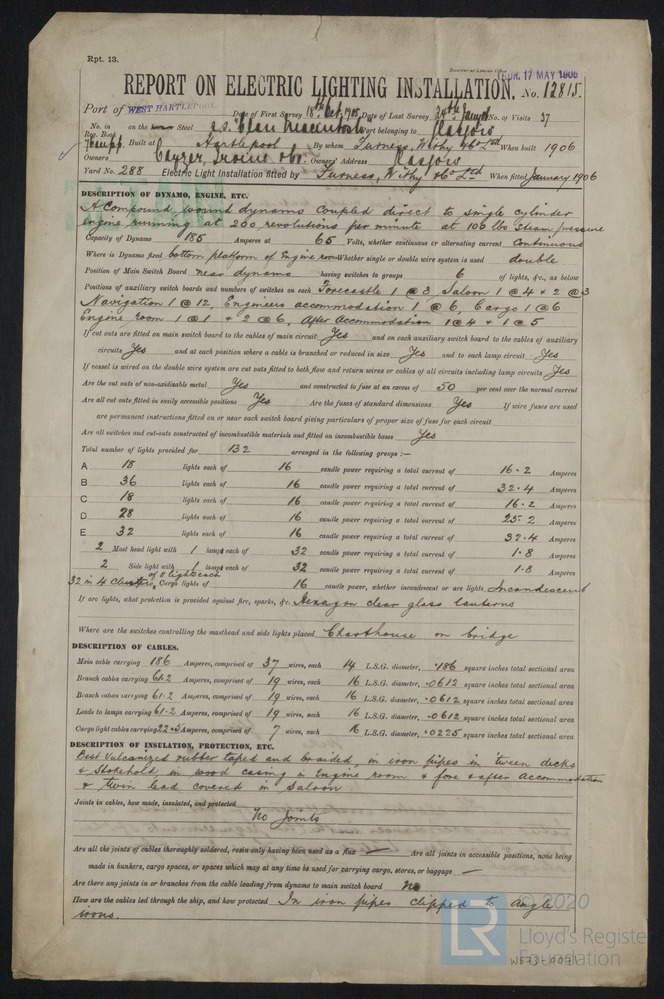 Rpt. 13.
THUR. 17 MAY 1906
REPORT ON ELECTRIC LIGHTING INSTALLATION. No. 12815.
Port of WEST HARTLEPOOL Date of First Survey 18th Oct. 1905 Date of Last Survey 24th Jany 06 No. of Visits 37
No. in Reg. Book on the Iron Steel s.s. "Clan Macintosh" Port belonging to Glasgow
Built at Hartlepool By whom Furness, Withy & Co Ltd When built 1906
Owners Cayzer, Irvine & Co. Owners' Address Glasgow
Yard No. 288 Electric Light Installation fitted by Furness, Withy & Co Ltd When fitted January 1906
DESCRIPTION OF DYNAMO, ENGINE, ETC.
A Compound wound dynamo coupled direct to single cylinder
engine running at 200 revolutions per minute at 100 lbs steam pressure
Capacity of Dynamo 185 Amperes at 65 Volts, whether continuous or alternating current Continuous
Where is Dynamo fixed bottom platform of Engine room Whether single or double wire system is used double
Position of Main Switch Board near dynamo having switches to groups 6 of lights, &c., as below
Positions of auxiliary switch boards and numbers of switches on each Forecastle 1 @ 3, Saloon 1 @ 4 + 2 @ 3
Navigation 1 @ 12, Engineers accommodation 1 @ 6, Cargo 1 @ 6
Engine room 1 @ 1 + 2 @ 6, After Accommodation 1 @ 4 + 1 @ 5
If cut outs are fitted on main switch board to the cables of main circuit Yes and on each auxiliary switch board to the cables of auxiliary
circuits Yes and at each position where a cable is branched or reduced in size Yes and to each lamp circuit Yes
If vessel is wired on the double wire system are cut outs fitted to both flow and return wires or cables of all circuits including lamp circuits Yes
Are the cut outs of non-oxidizable metal Yes and constructed to fuse at an excess of 50 per cent over the normal current
Are all cut outs fitted in easily accessible positions Yes Are the fuses of standard dimensions Yes If wire fuses are used
are permanent instructions fitted on or near each switch board giving particulars of proper size of fuse for each circuit
Are all switches and cut-outs constructed of incombustible materials and fitted on incombustible bases Yes
Total number of lights provided for 132 arranged in the following groups :—
A 18 lights each of 16 candle power requiring a total current of 16.2 Amperes
B 36 lights each of 16 candle power requiring a total current of 32.4 Amperes
C 18 lights each of 16 candle power requiring a total current of 16.2 Amperes
D 28 lights each of 16 candle power requiring a total current of 25.2 Amperes
E 32 lights each of 16 candle power requiring a total current of 32.4 Amperes
2 Mast head light with 1 lamps each of 32 candle power requiring a total current of 1.8 Amperes
2 Side light with 1 lamps each of 32 candle power requiring a total current of 1.8 Amperes
32 in 4 Clusters of 8 lights each Cargo lights of 16 candle power, whether incandescent or arc lights Incandescent
If arc lights, what protection is provided against fire, sparks, &c. Hexagon clear glass lanterns
Where are the switches controlling the masthead and side lights placed Charthouse on bridge
DESCRIPTION OF CABLES.
Main cable carrying 186 Amperes, comprised of 37 wires, each 14 L.S.G. diameter, .186 square inches total sectional area
Branch cables carrying 61.2 Amperes, comprised of 19 wires, each 16 L.S.G. diameter, .0612 square inches total sectional area
Branch cables carrying 61.2 Amperes, comprised of 19 wires, each 16 L.S.G. diameter, .0612 square inches total sectional area
Leads to lamps carrying 61.2 Amperes, comprised of 19 wires, each 16 L.S.G. diameter, .0612 square inches total sectional area
Cargo light cables carrying 22.5 Amperes, comprised of 7 wires, each 16 L.S.G. diameter, .0225 square inches total sectional area
DESCRIPTION OF INSULATION, PROTECTION, ETC.
Best Vulcanized rubber taped and braided, in iron pipes in 'tween decks
& Stokehold, in wood casing in Engine room & fore & after accommodation
& twin lead covered in Saloon
Joints in cables, how made, insulated, and protected
No Joints
Are all the joints of cables thoroughly soldered, resin only having been used as a flux — Are all joints in accessible positions, none being
made in bunkers, cargo spaces, or spaces which may at any time be used for carrying cargo, stores, or baggage —
Are there any joints in or branches from the cable leading from dynamo to main switch board No
How are the cables led through the ship, and how protected In iron pipes clipped to angle
irons.
© 2020
LR
Lloyd's Register
Foundation